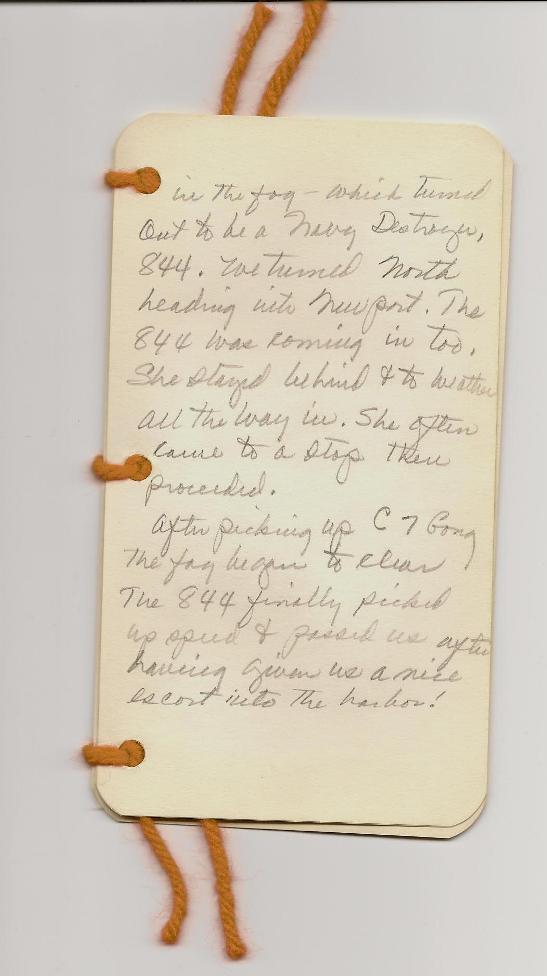 in the fog – which turned
Out to be a Navy Destroyer,
844. We turned North
heading into Newport. The
844 was coming in too.
She stayed behind & to weather
all the way in. She often
came to a stop then
proceeded.
After picking up C 7 Gong
The fog began to clear
The 844 finally picked
up speed & passed us after
having given us a nice
escort into the harbor!